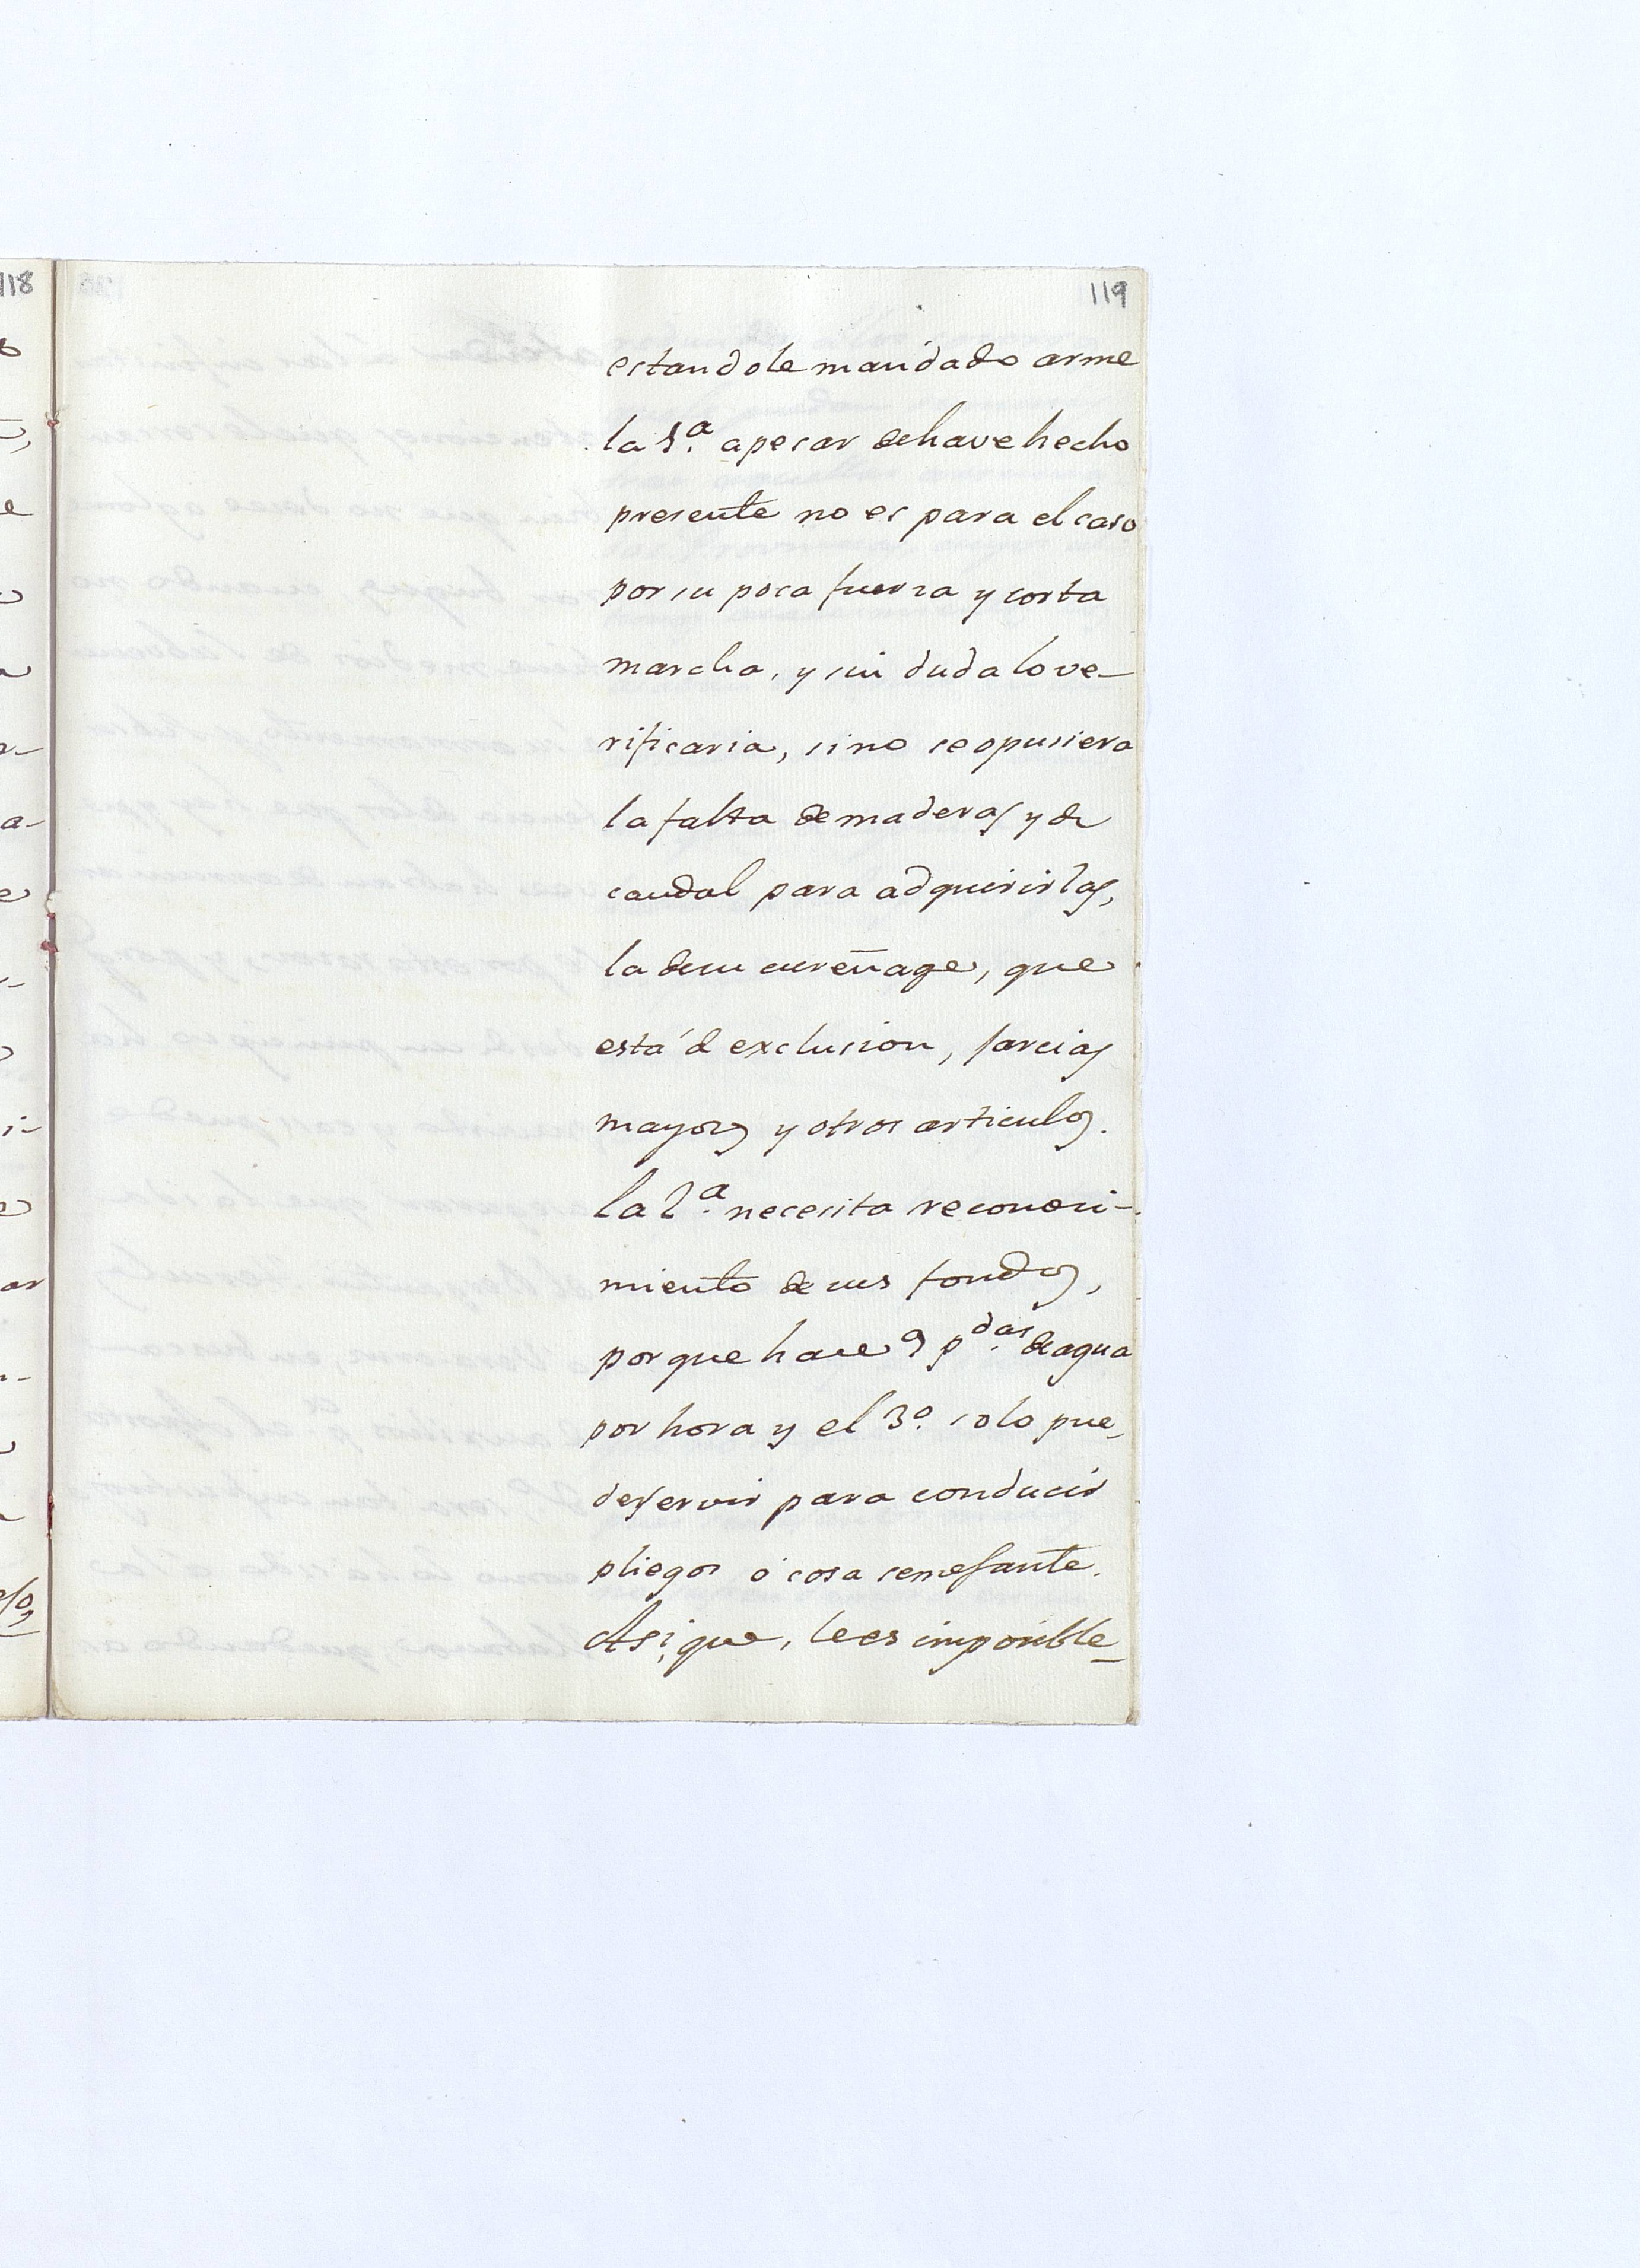 118
119
estandole mandado arme
la 1.ª apesar de have hecho
presente no es para el caso
por su poca fuerza y corta
marcha, y sin duda lo ve-
rificaria, si no se opusiera
la falta de maderas y de
caudal para adquirirlas,
la de su cureñage, que
está de exclusion, jarcias
mayores y otros articulos.
la 2.ª necesita reconoci-
miento de sus fondos,
porque hace 9 p.das de agua
por hora y el 3.º solo pue-
de servir para conducir
pliegos ó cosa semejante.
Asi que, le es imposible